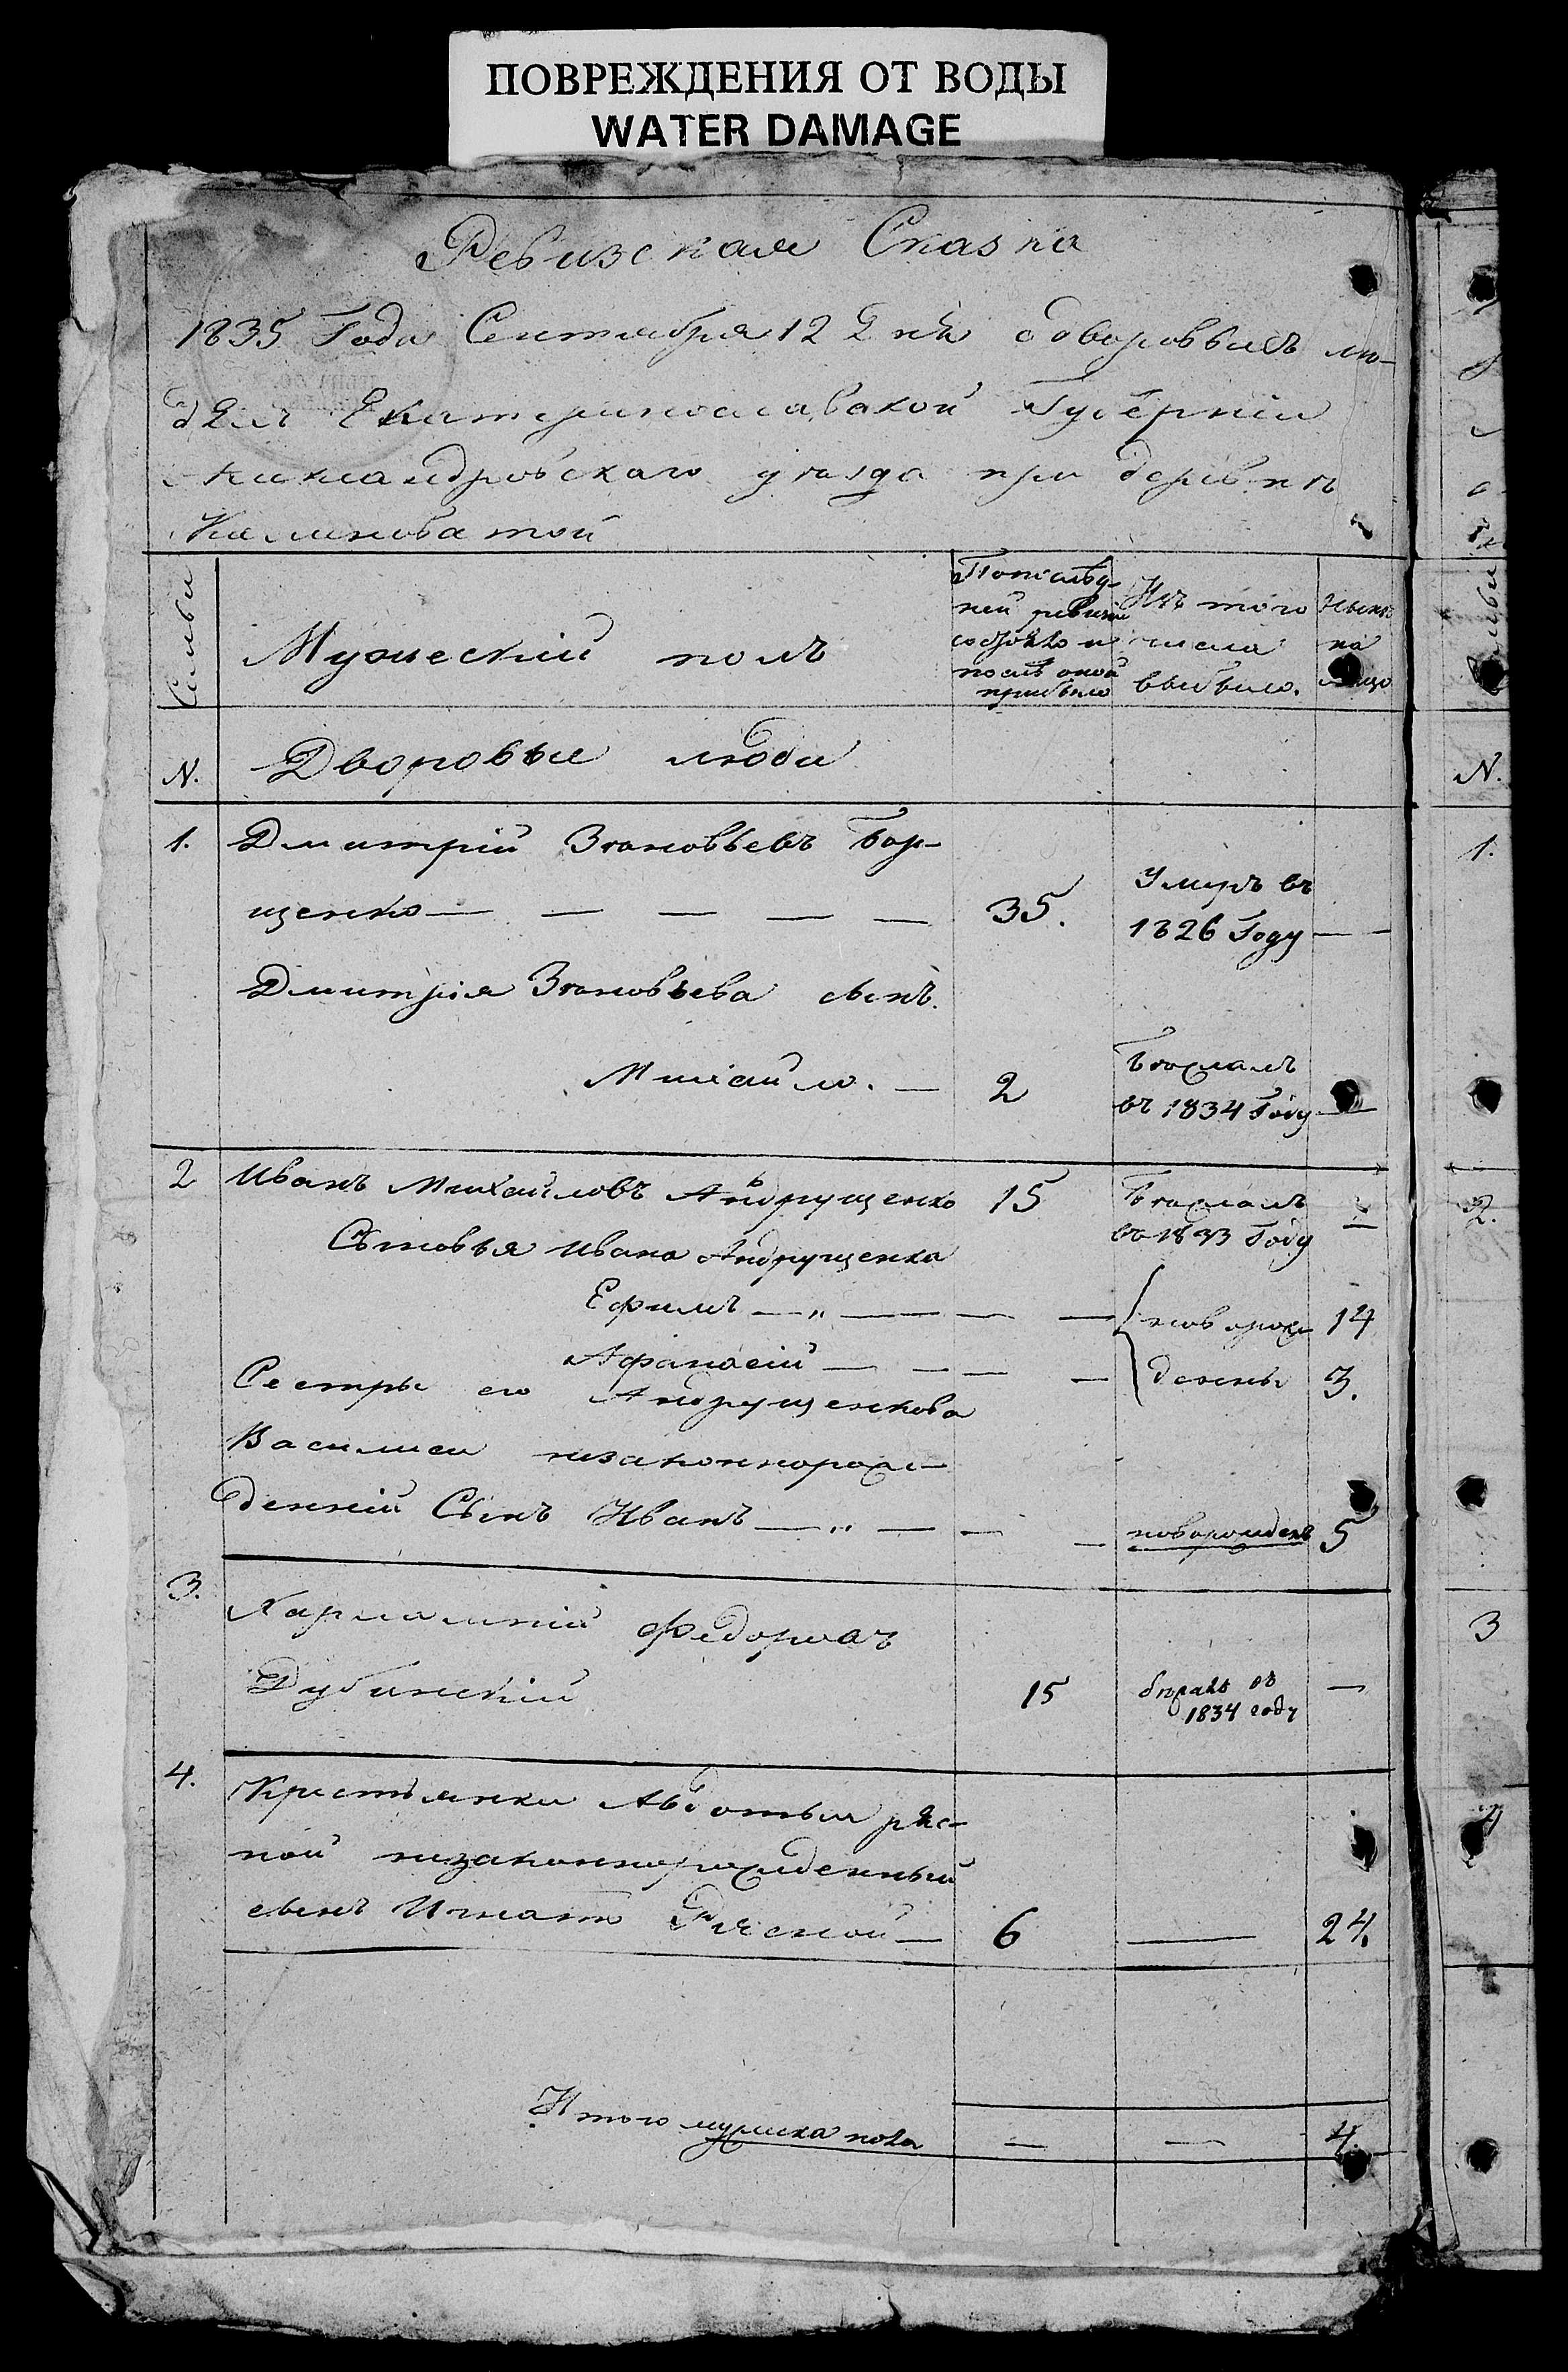 ПОВРЕЖДЕНИЯ ОТ ВОДЫ
WATER DAMAGE
Ревизская Сказка
1835 Года Сентября 12 Дня о дворовыхъ лю-
дяхъ Екатеринославской Губерніи
Александровскаго уезда при деревнѣ
Камноватой
Семьи
Мужескій полъ
По послѣд-
ней ревизіи
состояло и
послѣ оной
прибыло
Изъ того
числа
выбыло.
Нынѣ
на
лицо
N.
Дворовые люди
N.
1. Дмитрій Зеновьевъ Бор-
щенко — — — — — 35. Умеръ въ
1826 Году —
1.
Дмитрія Зеновьева сынъ.
Михайло. — 2 Бѣжалъ
въ 1834 Году —
2 Иванъ Михайловъ Андрущенко 15 Бежалъ
въ 1833 Году —
2.
Сыновья Ивана Андрущенка
Ефимъ — „ — — — новорож 14
Афанасій — — — — дены 3.
Сестры его Андрущенкова
Василисы незаконнорож-
денній Сынъ Иванъ — „ — — — новорожденъ 5
3. Харлампій Федоровъ
Дубинскій 15 бѣжалъ въ
1834 году —
3
4. Крестьянки Авдотьи ряс-
ной незаконнорожденный
сынъ Игнатъ Рясной — 6 — 24.
4
Итого мужеска пола — — 4.